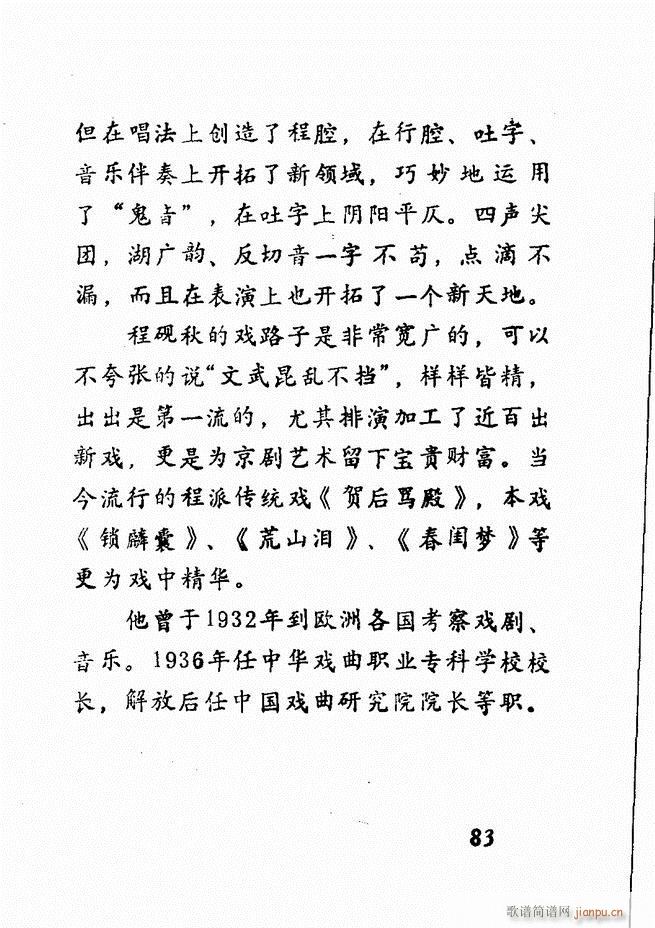 但在唱法上创造了程腔，在行腔、吐字、
音乐伴奏上开拓了新领域，巧妙地运用
了“鬼音”，在吐字上阴阳平仄。四声尖
团，湖广韵、反切音一字不苟，点滴不
漏，而且在表演上也开拓了一个新天地。
程砚秋的戏路子是非常宽广的，可以
不夸张的说“文武昆乱不挡”，样样皆精，
出出是第一流的，尤其排演加工了近百出
新戏，更是为京剧艺术留下宝贵财富。当
今流行的程派传统戏《贺后骂殿》，本戏
《锁麟囊》、《荒山泪》、《春闺梦》等
更为戏中精华。
他曾于1932年到欧洲各国考察戏剧、
音乐。1936年任中华戏曲职业专科学校校
长，解放后任中国戏曲研究院院长等职。
83
歌谱简谱网 jianpu.cn